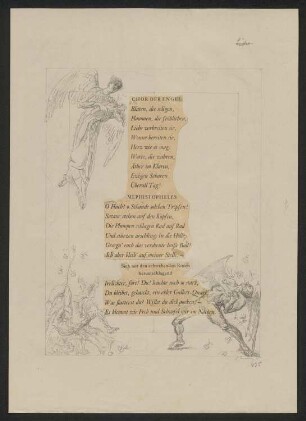 CHOR DER ENGEL
Blüten, die seligen,
Flammen, die fröhlichen,
Liebe verbreiten sie,
Wonne bereiten sie,
Herz wie es mag.
Worte, die wahren,
Äther im Klaren,
Ewigen Scharen
Überall Tag!
MEPHISTOPHELES
O Fluch! o Schande solchen Tröpfen!
Satane stehen auf den Köpfen,
Die Plumpen schlagen Rad auf Rad
Und stürzen ärschlings in die Hölle.
Gesegn' euch das verdiente heiße Bad!
Ich aber bleib' auf meiner Stelle. —
Sich mit den schwebenden Rosen
herumschlagend
Irrlichter, fort! Du! leuchte noch so stark,
Du bleibst, gehascht, ein ekler Gallert-Quark.
Was flatterst du? Willst du dich packen! —
Es klemmt wie Pech und Schwefel mir im Nacken.